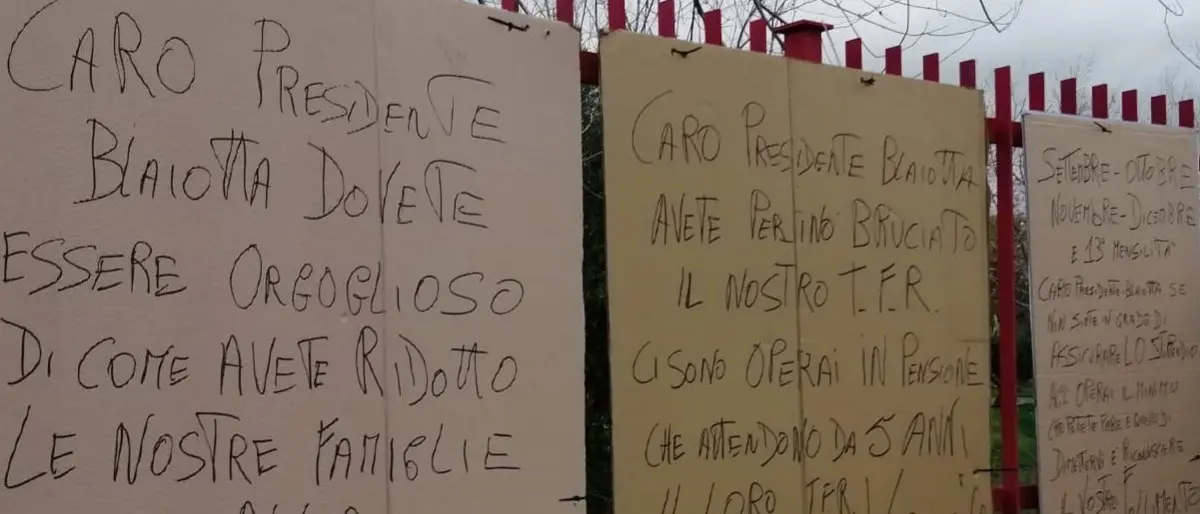 CARO PRESIDENTE
BLAIOTTA DOVETE
ESSERE ORGOGLIOSO
DI COME AVETE RIDOTTO
LE NOSTRE FAMIGLIE
CARO PRESIDENTE BLAIOTTA
AVETE PERSINO BRUCIATO
IL NOSTRO T.F.R.
CI SONO OPERAI IN PENSIONE
CHE ATTENDONO DA 5 ANNI
IL LORO T.F.R.
SETTEMBRE-OTTOBRE
NOVEMBRE-DICEMBRE
E 13° MENSILITA'
CARO PRESIDENTE BLAIOTTA SE
NON SIETE IN GRADO DI
ASSICURARE LO STIPENDIO
AGLI OPERAI IL MINIMO
CHE POTETE FARE E QUELLO DI
DIMETTERVI E RICONOSCERE
IL VOSTRO FALLIMENTO